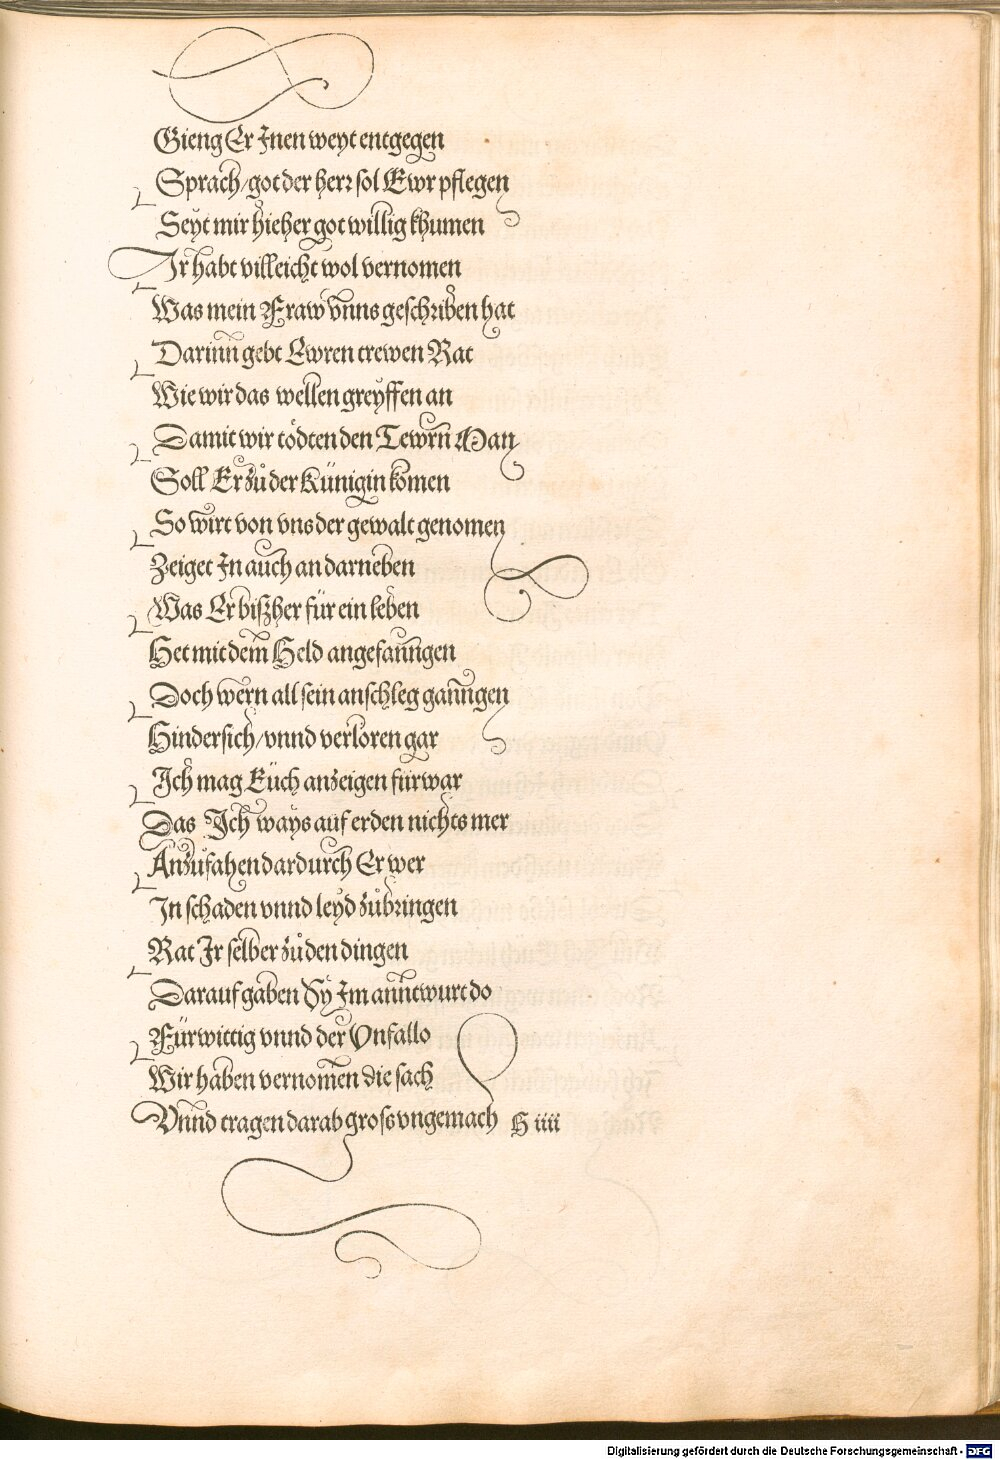 Gieng Er Inen weyt entgegen
Sprach/got der herr sol Ewr pflegen
Seyt mir hieher got willig khumen
Ir habt villeicht wol vernomen
Was mein Fraw vnns geschriben hat
Darinn gebt Ewren trewen Rat
Wie wir das wellen greyffen an
Damit wir tödten den Tewrn Man
Soll Er zů der Künigin komen
So wirt von vns der gewalt genomen
Zeiget In auch an darneben
Was Er bißher für ein leben
Het mit dem Held angefanngen
Doch wern all sein anschleg ganngen
Hindersich/vnnd verloren gar
Ich mag Eüch anzeigen fürwar
Das Ich ways auf erden nichts mer
Anzufahen dardurch Er wer
In schaden vnnd leyd zůbringen
Rat Ir selber zů den dingen
Darauf gaben Sy Im anntwurt do
Fürwittig vnnd der Vnfallo
Wir haben vernomen die sach
Vnnd tragen darab gross vngemach H iiii
Digitalisierung gefördert durch die Deutsche Forschungsgemeinschaft - DFG